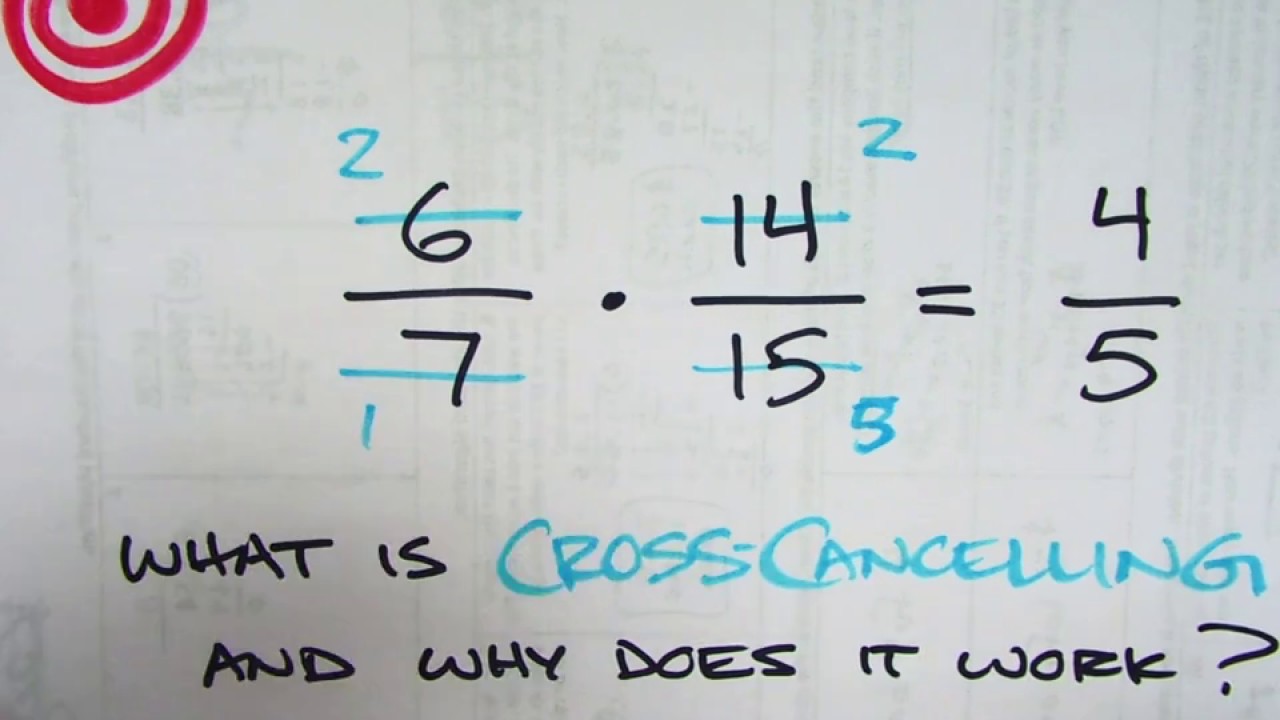 2 2
6 14 4
— · — = —
7 15 5
1 5
WHAT IS CROSS-CANCELLING
AND WHY DOES IT WORK?